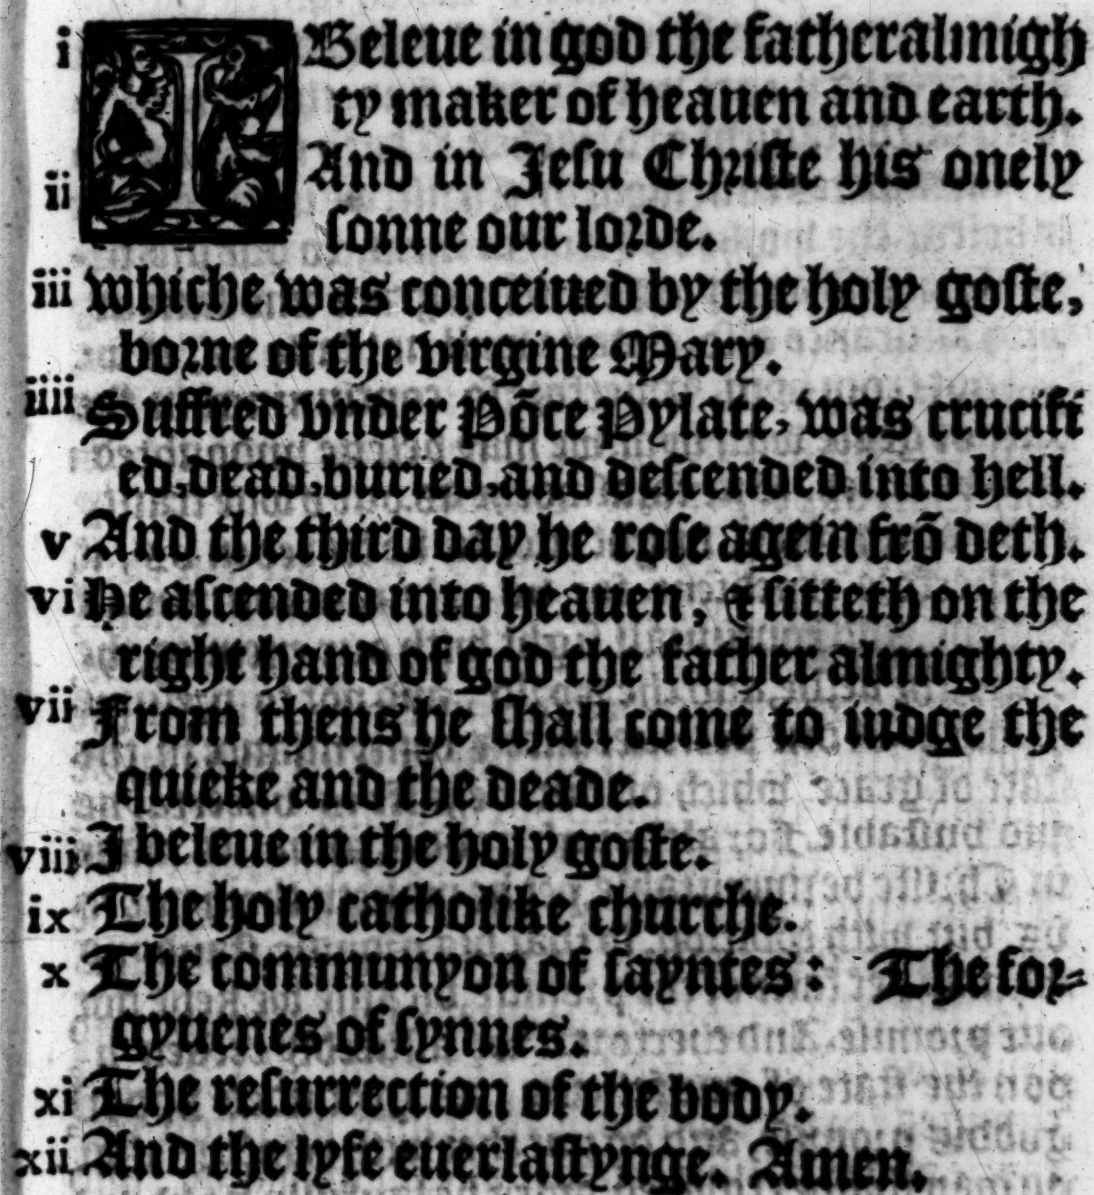 i I Beleue in god the father almigh
ty maker of heauen and earth.
ii And in Jesu Christe his onely
sonne our lorde.
iii whiche was conceiued by the holy goste,
borne of the virgine Mary.
iiii Suffred vnder Põce Pylate, was crucifi
ed, dead, buried, and descended into hell.
v And the third day he rose agein frõ deth.
vi He ascended into heauen, & sitteth on the
right hand of god the father almighty.
vii From thens he shall come to iudge the
quicke and the deade.
viii I beleue in the holy goste.
ix The holy catholike churche.
x The communyon of sayntes: The for-
gyuenes of synnes.
xi The resurrection of the body.
xii And the lyfe euerlastynge. Amen.